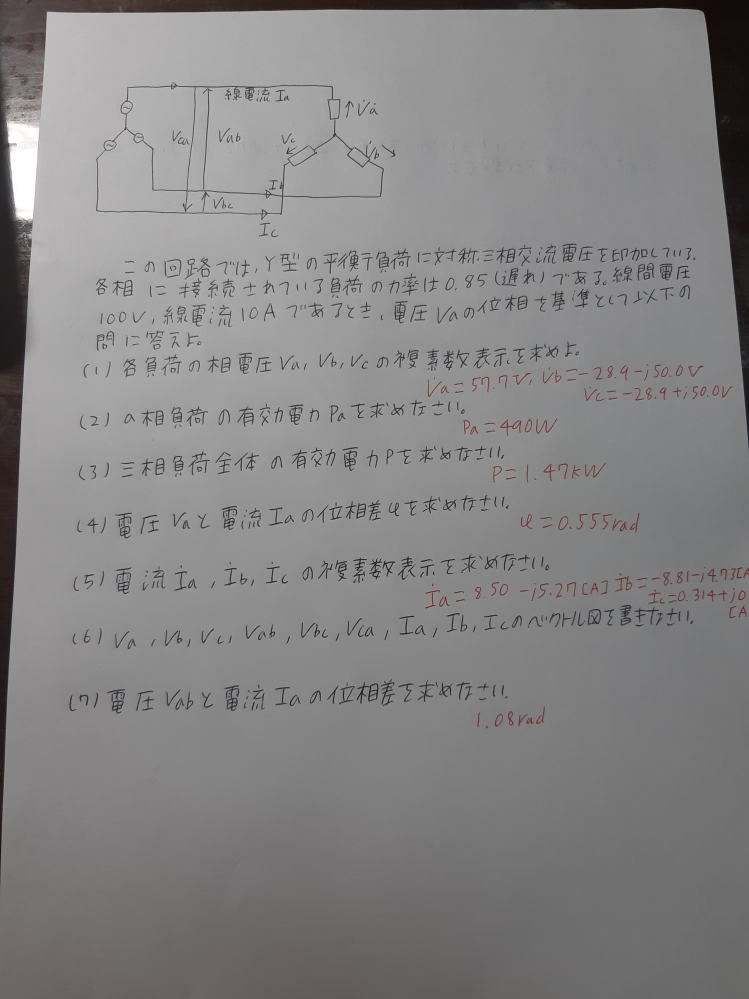 線電流 Ia
V̇a
Vca
Vab
Vc
V̇b
Ib
Vbc
Ic
この回路では, Y型の平衡負荷に対称三相交流電圧を印加している.
各相に接続されている負荷の力率は0.85(遅れ)である。線間電圧
100V, 線電流10Aであるとき, 電圧Vaの位相を基準として以下の
問に答えよ。
(1) 各負荷の相電圧Va, Vb, Vcの複素数表示を求めよ。
V̇a=57.7V, V̇b=-28.9-j50.0V
V̇c=-28.9+j50.0V
(2) a相負荷の有効電力Paを求めなさい。
Pa=490W
(3) 三相負荷全体の有効電力Pを求めなさい。
P=1.47kW
(4) 電圧Vaと電流Iaの位相差φを求めなさい。
φ=0.555rad
(5) 電流İa, İb, İcの複素数表示を求めなさい。
İa=8.50-j5.27[A] İb=-8.81-j4.73[A
İc=0.314+j0
[A
(6) Va, Vb, Vc, Vab, Vbc, Vca, Ia, Ib, Icのベクトル図を書きなさい.
(7) 電圧Vabと電流Iaの位相差を求めなさい.
1.08rad